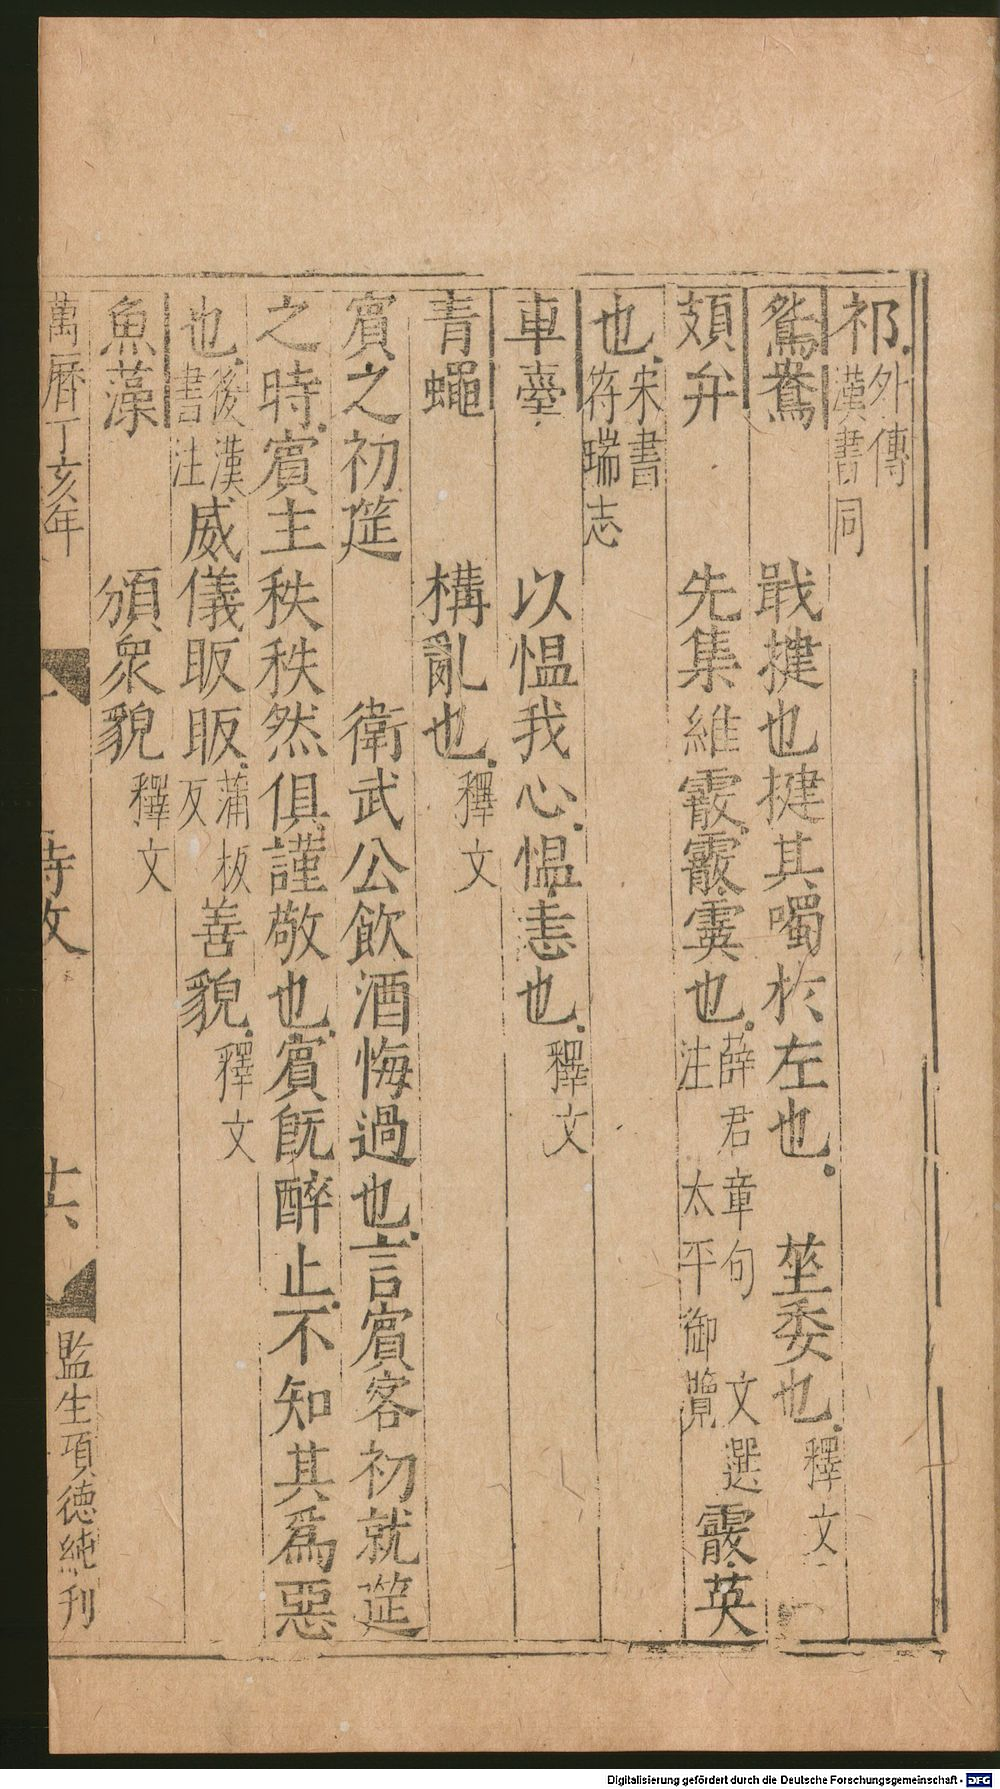 祁外傳漢書同
鴛鴦　戢揵也揵其噣於左也　莝委也釋文
頍弁　先集維霰霰霙也薛君章句　文選注　太平御覽霰英
也宋書符瑞志
車舝　以愠我心愠恚也釋文
青蠅　構亂也釋文
賓之初筵　衛武公飲酒悔過也言賓客初就筵
之時賓主秩秩然俱謹敬也賓旣醉止不知其爲惡
也後漢書注威儀昄昄蒲板反善貌釋文
魚藻　頒衆貌釋文
萬曆丁亥年　詩攷　十六　監生項德純刊
Digitalisierung gefördert durch die Deutsche Forschungsgemeinschaft - DFG